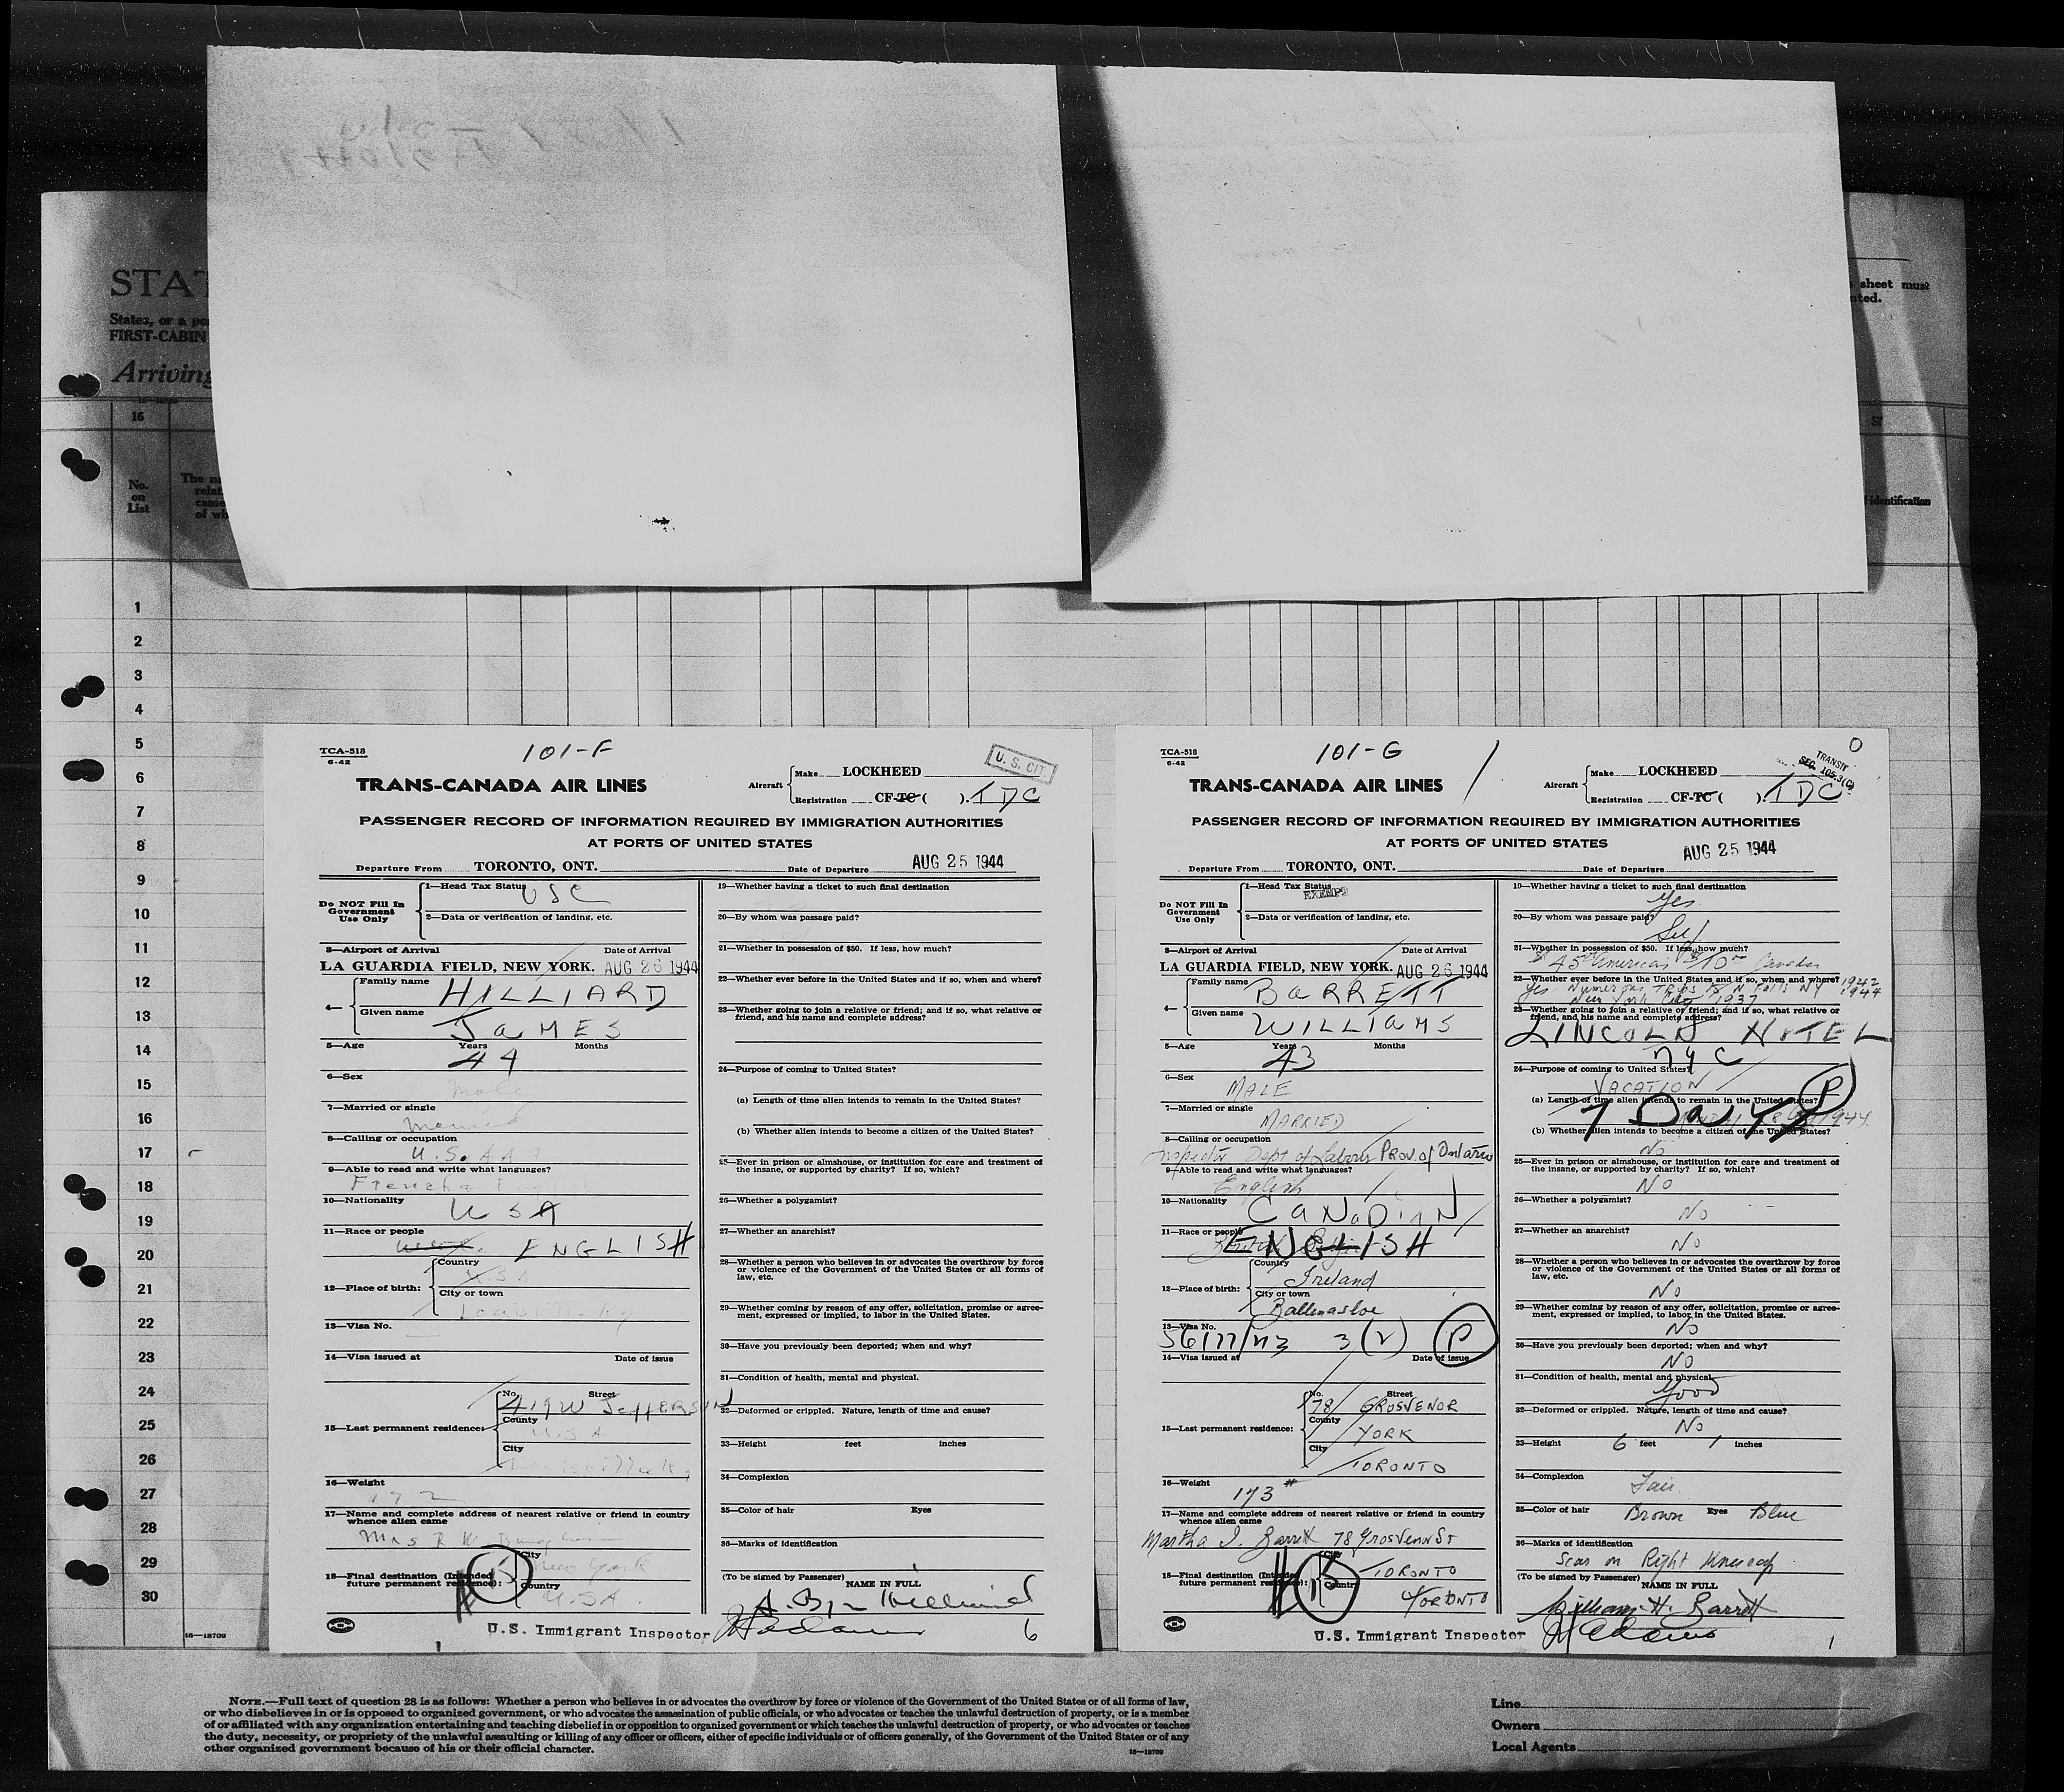 STAT
States, or a po
FIRST-CABIN
Arriving
sheet must
nted.
16
57
No.
on
List
The na
relat
came
of wh
f identification
1
2
3
4
5
6
7
8
9
10
11
12
13
14
15
16
17
18
19
20
21
22
23
24
25
26
27
28
29
30
16—18709
TCA-518
6-42
101-F
U. S. CIT.
TRANS-CANADA AIR LINES
Aircraft
Make LOCKHEED
Registration CF-TC ( ). TDC
PASSENGER RECORD OF INFORMATION REQUIRED BY IMMIGRATION AUTHORITIES
AT PORTS OF UNITED STATES
Departure From TORONTO, ONT. Date of Departure AUG 25 1944
Do NOT Fill In
Government
Use Only
1—Head Tax Status USC
2—Data or verification of landing, etc.
3—Airport of Arrival Date of Arrival
LA GUARDIA FIELD, NEW YORK. AUG 26 1944
4—
Family name HILLIARD
Given name JaMES
5—Age Years Months
44
6—Sex
Male
7—Married or single
Married
8—Calling or occupation
U.S. A A F
9—Able to read and write what languages?
French English
10—Nationality
USA
11—Race or people
ENGLISH
12—Place of birth:
Country
U.S.A
City or town
Louisville Ky
13—Visa No.
14—Visa issued at Date of issue
15—Last permanent residence:
No. Street
419 W JeffersoN
County
U.S.A
City
Louisville Ky
16—Weight
172
17—Name and complete address of nearest relative or friend in country
whence alien came
Mrs R W
18—Final destination (Intended
future permanent residence):
City
New York
Country
U.S.A.
15
19—Whether having a ticket to such final destination
20—By whom was passage paid?
21—Whether in possession of $50. If less, how much?
22—Whether ever before in the United States and if so, when and where?
23—Whether going to join a relative or friend; and if so, what relative or
friend, and his name and complete address?
24—Purpose of coming to United States?
(a) Length of time alien intends to remain in the United States?
(b) Whether alien intends to become a citizen of the United States?
25—Ever in prison or almshouse, or institution for care and treatment of
the insane, or supported by charity? If so, which?
26—Whether a polygamist?
27—Whether an anarchist?
28—Whether a person who believes in or advocates the overthrow by force
or violence of the Government of the United States or all forms of
law, etc.
29—Whether coming by reason of any offer, solicitation, promise or agree-
ment, expressed or implied, to labor in the United States.
30—Have you previously been deported; when and why?
31—Condition of health, mental and physical.
32—Deformed or crippled. Nature, length of time and cause?
33—Height feet inches
34—Complexion
35—Color of hair Eyes
36—Marks of identification
(To be signed by Passenger)
NAME IN FULL
U.S. Immigrant Inspector
6
TCA-518
6-42
101-G
0
TRANSIT
SEC. 105.3(C)
TRANS-CANADA AIR LINES
Aircraft
Make LOCKHEED
Registration CF-TC ( ). TDC
PASSENGER RECORD OF INFORMATION REQUIRED BY IMMIGRATION AUTHORITIES
AT PORTS OF UNITED STATES
Departure From TORONTO, ONT. Date of Departure AUG 25 1944
Do NOT Fill In
Government
Use Only
1—Head Tax Status EXEMPT
2—Data or verification of landing, etc.
3—Airport of Arrival Date of Arrival
LA GUARDIA FIELD, NEW YORK. AUG 26 1944
4—
Family name BaRRETT
Given name WILLIaMS
5—Age Years Months
43
6—Sex
MALE
7—Married or single
MARRIED
8—Calling or occupation
Inspector Dept of Labour Prov. of Ontario
9—Able to read and write what languages?
English
10—Nationality
CaNaDIaN
11—Race or people
ENGLISH
12—Place of birth:
Country
Ireland
City or town
Ballinasloe
13—Visa No.
56177/43 3(2) P
14—Visa issued at Date of issue
15—Last permanent residence:
No. Street
78 GROSVENOR
County
YORK
City
TORONTO
16—Weight
173 #
17—Name and complete address of nearest relative or friend in country
whence alien came
Martha I. Barrett 78 Grosvenor St
18—Final destination (Intended
future permanent residence):
City
TORONTO
Country
TORONTO
15
19—Whether having a ticket to such final destination
Yes
20—By whom was passage paid?
Self
21—Whether in possession of $50. If less, how much?
$45 American $10 Canadian
22—Whether ever before in the United States and if so, when and where?
Yes Numerous Trips to N Falls NY 1942 1944
New York City 1937
23—Whether going to join a relative or friend; and if so, what relative or
friend, and his name and complete address?
LINCOLN HOTEL
NYC
24—Purpose of coming to United States?
VACATION
P
(a) Length of time alien intends to remain in the United States?
7 Days
(b) Whether alien intends to become a citizen of the United States?
No
25—Ever in prison or almshouse, or institution for care and treatment of
the insane, or supported by charity? If so, which?
No
26—Whether a polygamist?
No
27—Whether an anarchist?
No
28—Whether a person who believes in or advocates the overthrow by force
or violence of the Government of the United States or all forms of
law, etc.
No
29—Whether coming by reason of any offer, solicitation, promise or agree-
ment, expressed or implied, to labor in the United States.
No
30—Have you previously been deported; when and why?
No
31—Condition of health, mental and physical.
Good
32—Deformed or crippled. Nature, length of time and cause?
No
33—Height 6 feet 1 inches
34—Complexion
Fair
35—Color of hair Brown Eyes Blue
36—Marks of identification
Scar on Right Kneecap
(To be signed by Passenger)
NAME IN FULL
William H. Barrett
U.S. Immigrant Inspector
1
NOTE.—Full text of question 28 is as follows: Whether a person who believes in or advocates the overthrow by force or violence of the Government of the United States or of all forms of law,
or who disbelieves in or is opposed to organized government, or who advocates the assassination of public officials, or who advocates or teaches the unlawful destruction of property, or is a member
of or affiliated with any organization entertaining and teaching disbelief in or opposition to organized government or which teaches the unlawful destruction of property, or who advocates or teaches
the duty, necessity, or propriety of the unlawful assaulting or killing of any officer or officers, either of specific individuals or of officers generally, of the Government of the United States or of any
other organized government because of his or their official character.
16—18709
Line
Owners
Local Agents